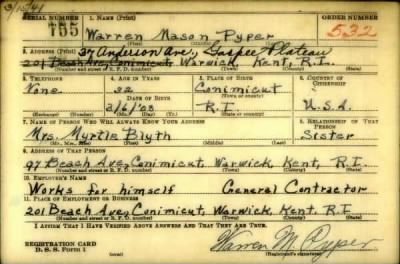 3/15/41
SERIAL NUMBER 1. NAME (Print) ORDER NUMBER
755 Warren Mason Pyper 532
(First) (Middle) (Last)
2. ADDRESS (Print) 37 Anderson Ave., Gaspee Plateau
201 Beach Ave, Conimicut Warwick, Kent, R.I.
(Number and street or R. F. D. number) (Town) (County) (State)
3. TELEPHONE 4. AGE IN YEARS 5. PLACE OF BIRTH 6. COUNTRY OF CITIZENSHIP
None 32 Conimicut
DATE OF BIRTH (Town or county)
2/6/08 R.I. U.S.A.
7. NAME OF PERSON WHO WILL ALWAYS KNOW YOUR ADDRESS 8. RELATIONSHIP OF THAT PERSON
Mrs. Myrtle Blyth Sister
(Mr., Mrs., Miss) (First) (Middle) (Last)
9. ADDRESS OF THAT PERSON
97 Beach Ave, Conimicut, Warwick, Kent, R.I.
(Number and street or R. F. D. number) (Town) (County) (State)
10. EMPLOYER'S NAME
Works for himself General Contractor
11. PLACE OF EMPLOYMENT OR BUSINESS
201 Beach Ave, Conimicut, Warwick, Kent, R.I.
(Number and street or R. F. D. number) (Town) (County) (State)
I AFFIRM THAT I HAVE VERIFIED ABOVE ANSWERS AND THAT THEY ARE TRUE.
REGISTRATION CARD
D. S. S. Form 1 Warren M. Pyper
(over) (Registrant's signature)